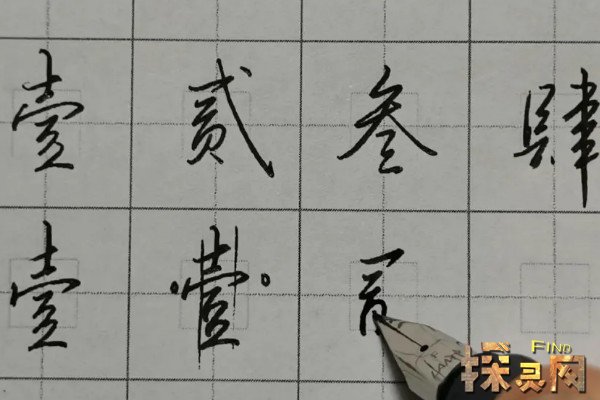 壹贰叁肆
壹壹
FIND
探灵网